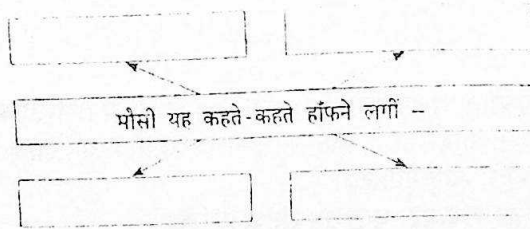 मौसी यह कहते-कहते हाँफने लगीं –